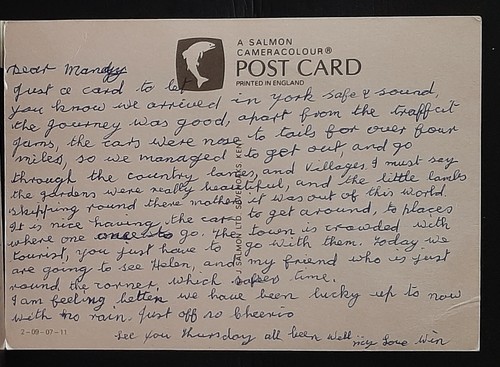 A SALMON
CAMERACOLOUR®
POST CARD
PRINTED IN ENGLAND
Dear Mandy
Just a card to let
you know we arrived in York safe & sound,
the journey was good, apart from the traffict
jams, the cars were nose to tails for over four
miles, so we managed to get out, and go
through the country lanes, and villages, I must say
the gardens were really beautiful, and the little lambs
skipping round there mothers it was out of this world.
It is nice having the car to get around, to places
where one to go. The town is crowded with
tourist, you just have to go with them. Today we
are going to see Helen, and my friend who is just
round the corner, which time.
I am feeling better we have been lucky up to now
with no rain. Just off so Cheerio
see you Thursday all been well Love Win
J. SALMON LTD. SEVENOAKS KENT
2-09-07-11